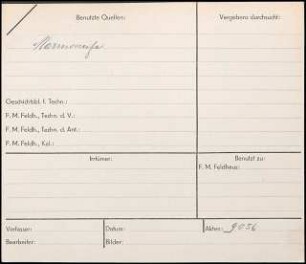 Benutzte Quellen:
Vergebens durchsucht:
Geschichtsbl. f. Techn.:
F. M. Feldh., Techn. d. V.:
F. M. Feldh., Techn. d. Ant.:
F. M. Feldh., Kol.:
Irrtümer:
Benutzt zu:
F. M. Feldhaus:
Verfasser:
Datum:
Akten: 9056
Bearbeiter:
Bilder: